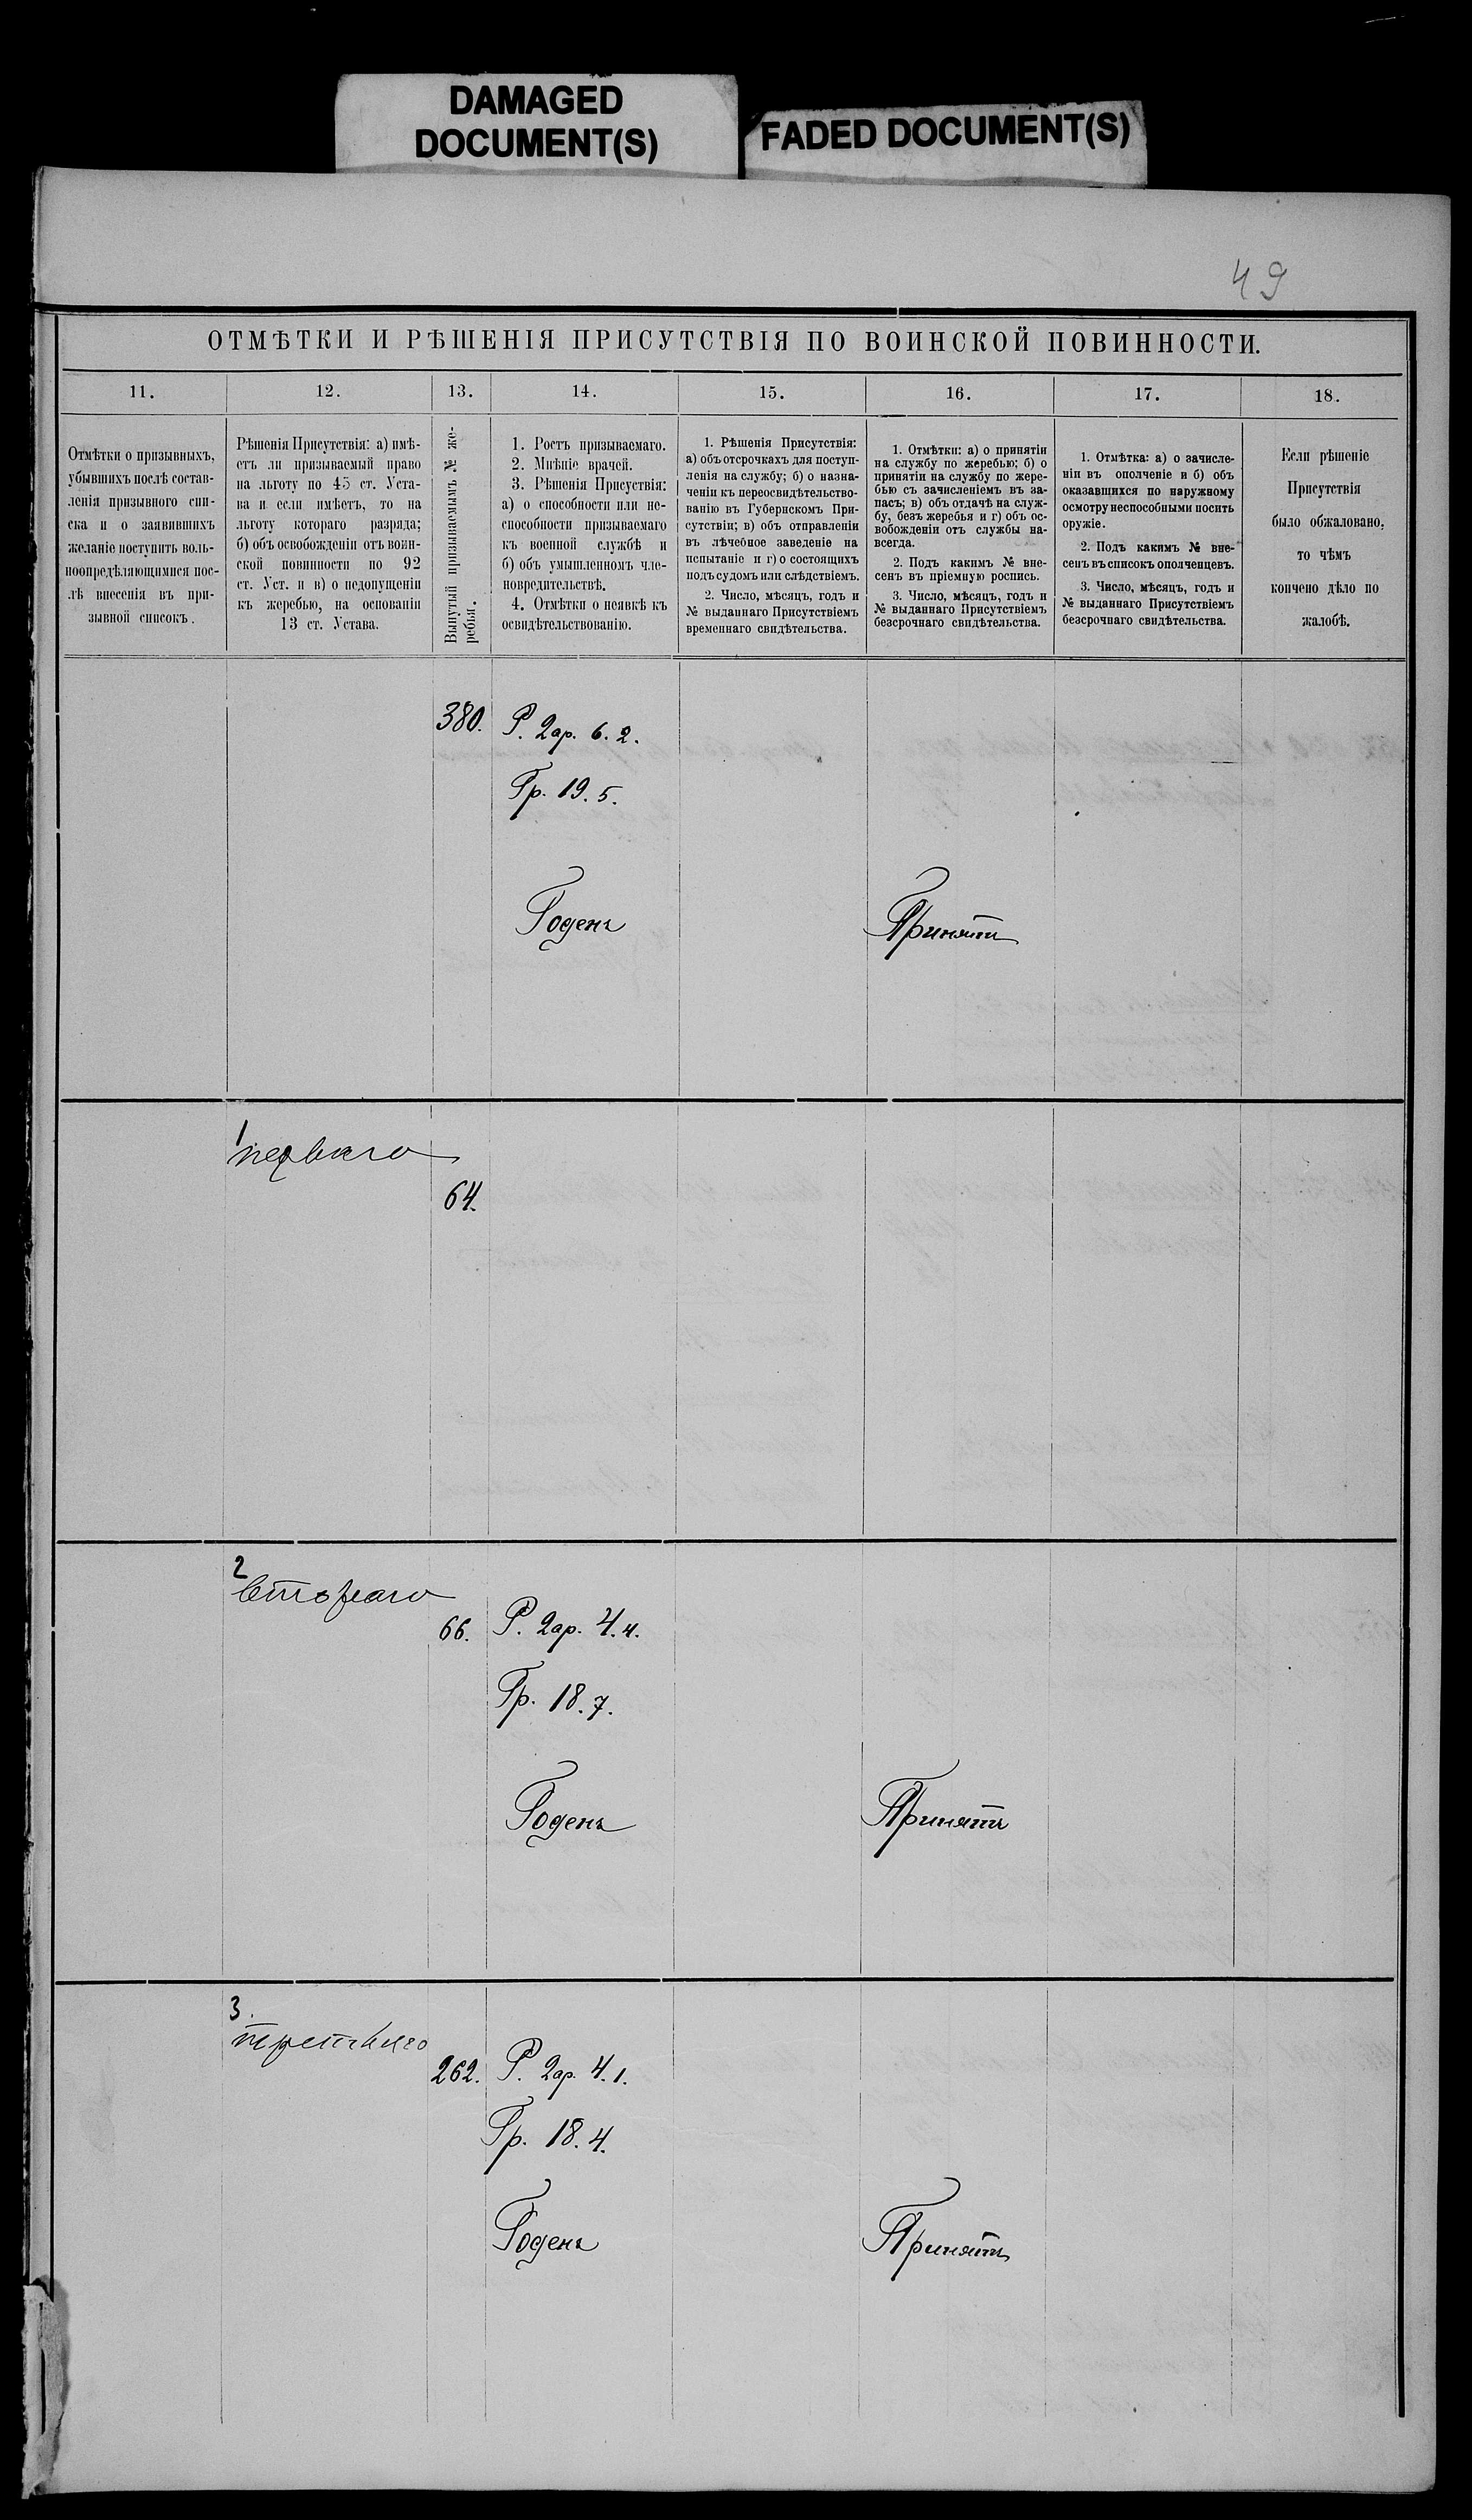 DAMAGED
DOCUMENT(S)
FADED DOCUMENT(S)
49
ОТМѢТКИ И РѢШЕНІЯ ПРИСУТСТВІЯ ПО ВОИНСКОЙ ПОВИННОСТИ.
11.
12.
13.
14.
15.
16.
17.
18.
Отмѣтки о призывныхъ,
убывшихъ послѣ состав-
ленія призывного спи-
ска и о заявившихъ
желаніе поступить воль-
ноопредѣляющимися пос-
лѣ внесенія въ при-
зывной списокъ.
Рѣшенія Присутствія: а) имѣ-
етъ ли призываемый право
на льготу по 45 ст. Уста-
ва и если имѣетъ, то на
льготу котораго разряда;
б) объ освобожденіи отъ воин-
ской повинности по 92
ст. Уст. и в) о недопущеніи
къ жеребью, на основаніи
13 ст. Устава.
Вынутый призываемымъ № же-
ребья.
1. Ростъ призываемаго.
2. Мнѣніе врачей.
3. Рѣшенія Присуствія:
а) о способности или не-
способности призываемаго
къ военной службѣ и
б) объ умышленномъ чле-
новредительствѣ.
4. Отмѣтки о неявкѣ къ
освидѣтельствованію.
1. Рѣшенія Присутствія:
а) объ отсрочкахъ для поступ-
ленія на службу; б) о назна-
ченіи къ переосвидѣтельство-
ванію въ Губернскомъ При-
сутствіи; в) объ отправленіи
въ лѣчебное заведеніе на
испытаніе и г) о состоящихъ
подъ судомъ или слѣдствіемъ.
2. Число, мѣсяцъ, годъ и
№ выданнаго Присутствіемъ
временнаго свидѣтельства.
1. Отмѣтки: а) о принятіи
на службу по жеребью; б) о
принятіи на службу по жере-
бью съ зачисленіемъ въ за-
пасъ; в) объ отдачѣ на служ-
бу, безъ жеребья и г) объ ос-
вобожденіи отъ службы на-
всегда.
2. Подъ какимъ № вне-
сенъ въ пріемную роспись.
3. Число, мѣсяцъ, годъ и
№ выданнаго Присутствіемъ
безсрочнаго свидѣтельства.
1. Отмѣтка: а) о зачисле-
ніи въ ополченіе и б) объ
оказавшихся по наружному
осмотру неспособными носить
оружіе.
2. Подъ какимъ № вне-
сенъ въ списокъ ополченцевъ.
3. Число, мѣсяцъ, годъ и
№ выданнаго Присутствіемъ
безсрочнаго свидѣтельства.
Если рѣшеніе
Присутствія
было обжаловано,
то чѣмъ
кончено дѣло по
жалобѣ.
380.
Р. 2 ар. 6. 2.
Гр. 19. 5.
Годенъ
Принятъ
1
перваго
64.
2
втораго
66.
Р. 2 ар. 4. 4.
Гр. 18. 7.
Годенъ
Принятъ
3.
третьяго
262.
Р. 2 ар. 4. 1.
Гр. 18. 4.
Годенъ
Принятъ